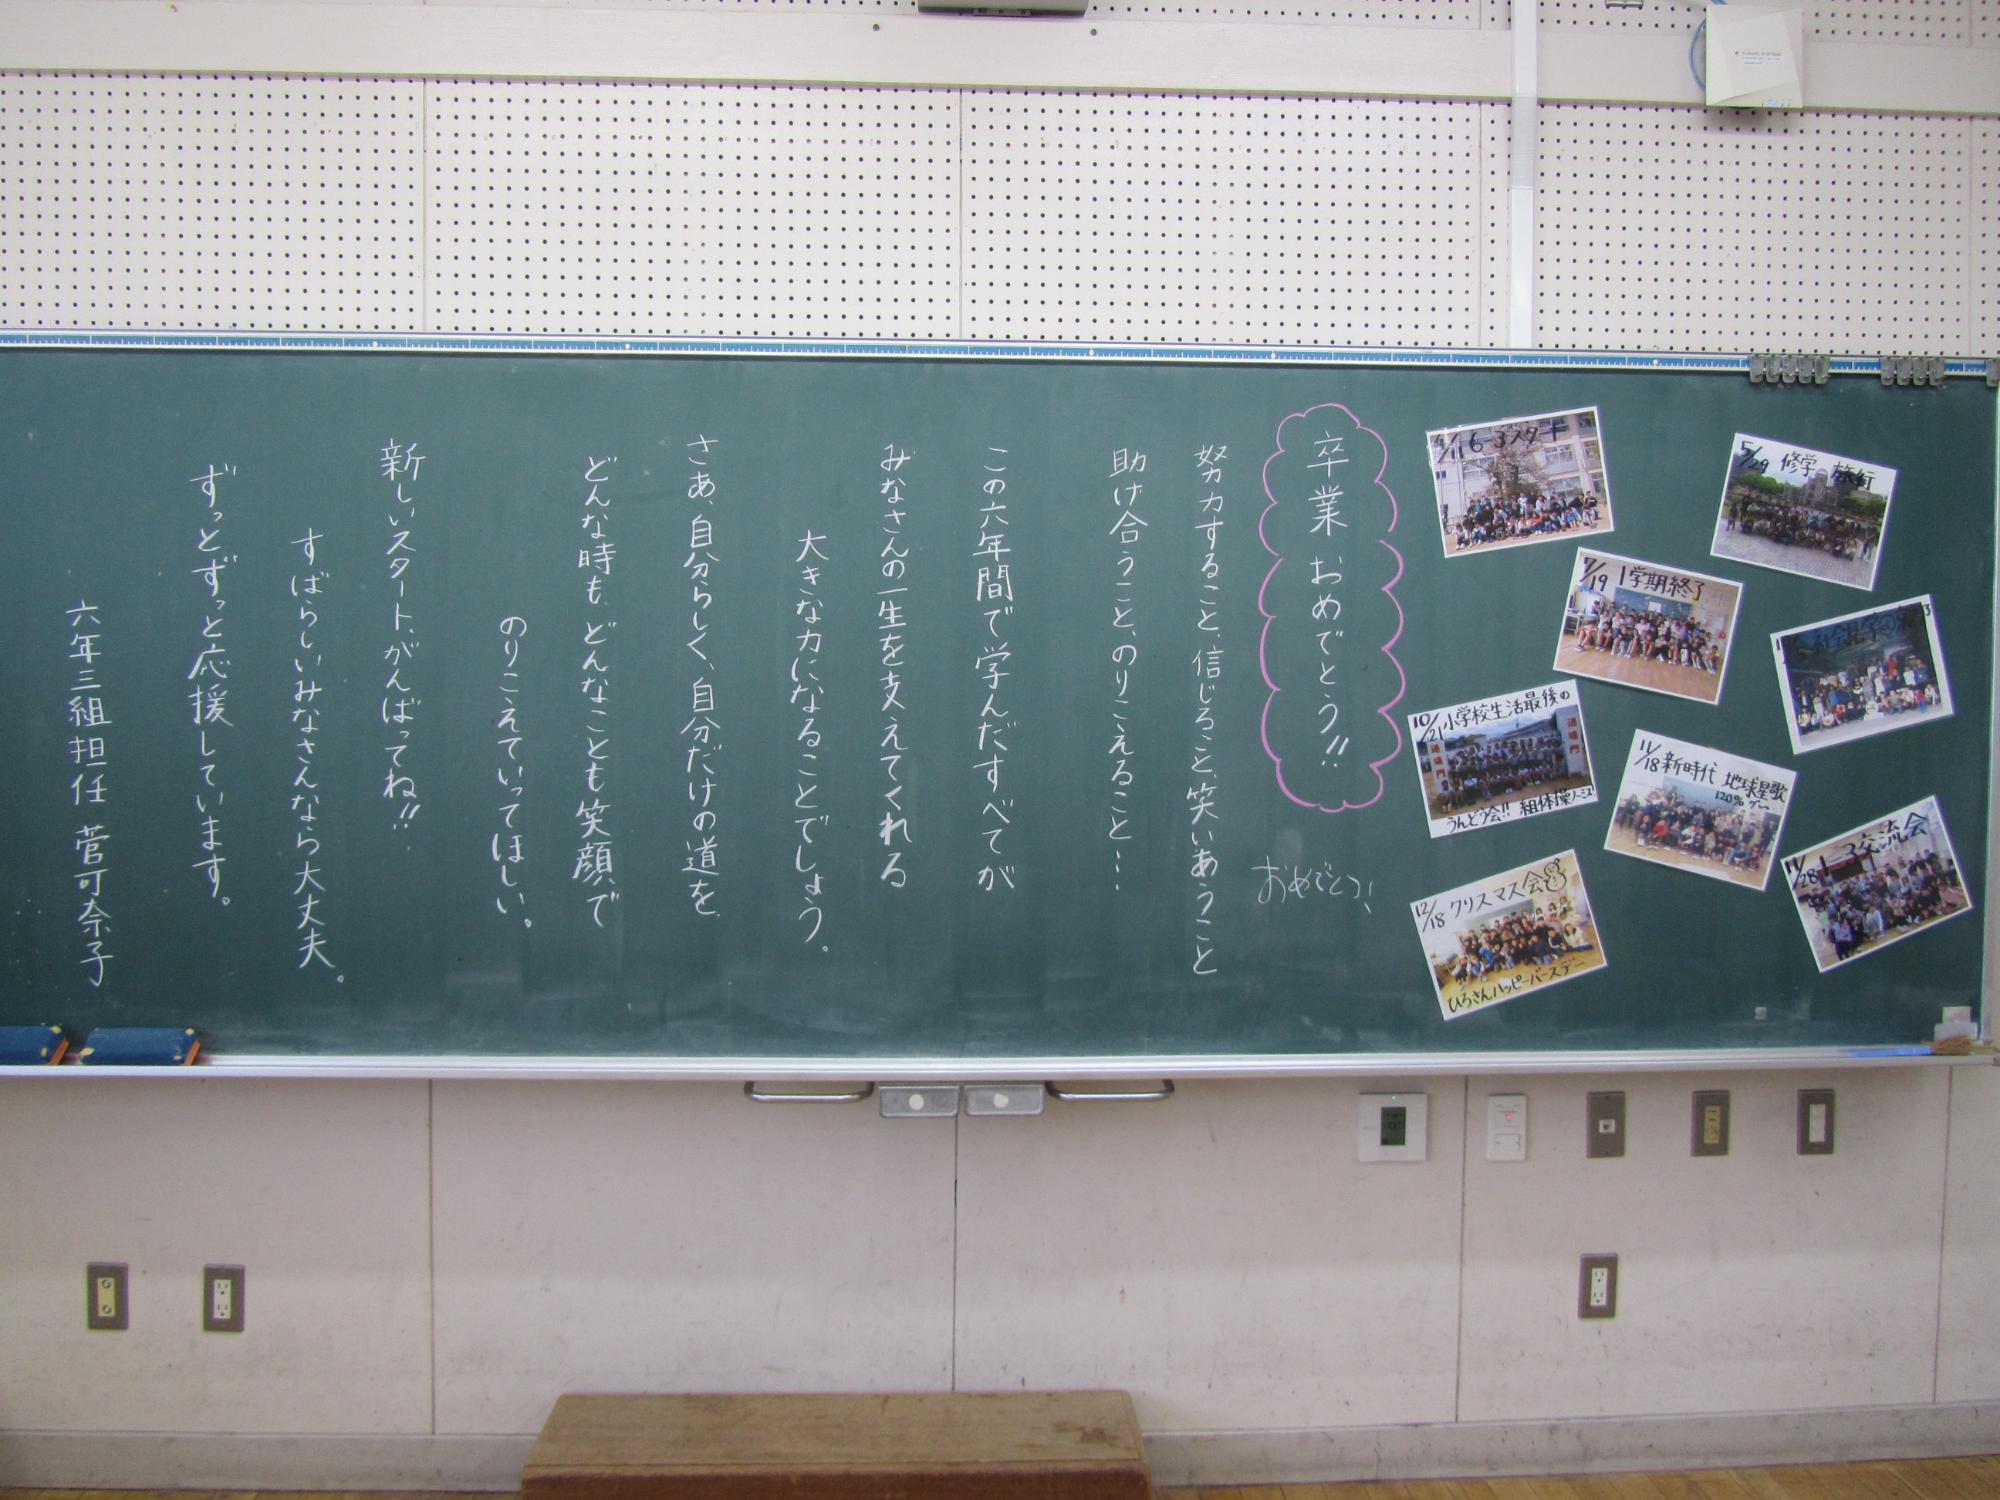 卒業おめでとう!!
おめでとう!
努力すること、信じること、笑いあうこと
助け合うこと、のりこえること…
この六年間で学んだすべてが
みなさんの一生を支えてくれる
大きな力になることでしょう。
さあ、自分らしく、自分だけの道を、
どんな時も、どんなことも笑顔で
のりこえていってほしい。
新しいスタート、がんばってね!!
すばらしいみなさんなら大丈夫。
ずっとずっと応援しています。
六年三組担任 菅可奈子
6-3スタート
5/29 修学旅行
7/19 1学期終了
社会見学
10/21 小学校生活最後の
うんどう会!! 組体操ノーミス
通場門
11/18 新時代 地球星歌
120%
11/28 交流会
12/18 クリスマス会
ひろさんハッピーバースデー